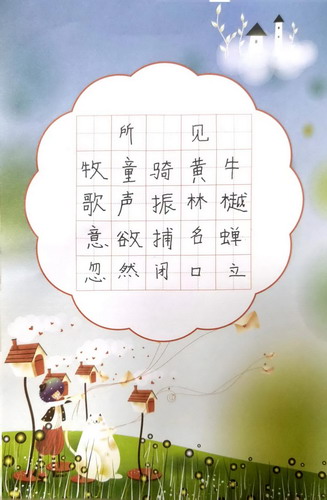 所见
牧童骑黄牛
歌声振林樾
意欲捕名蝉
忽然闭口立